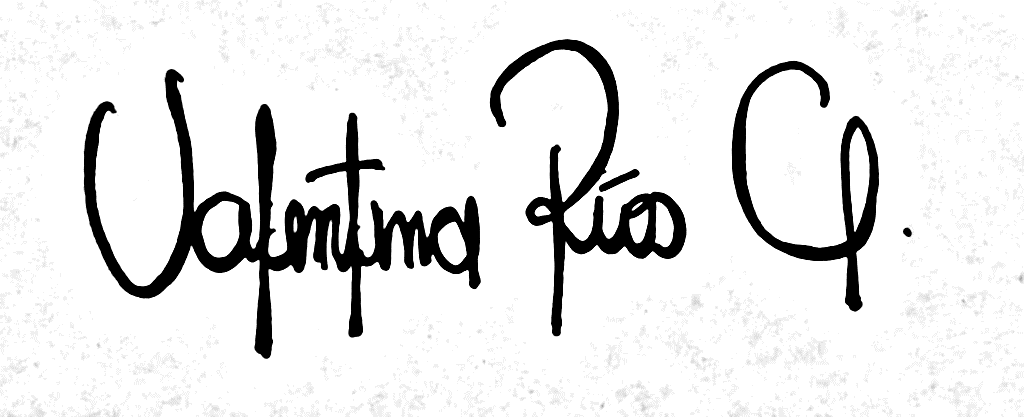 Valentina Ríos Q.